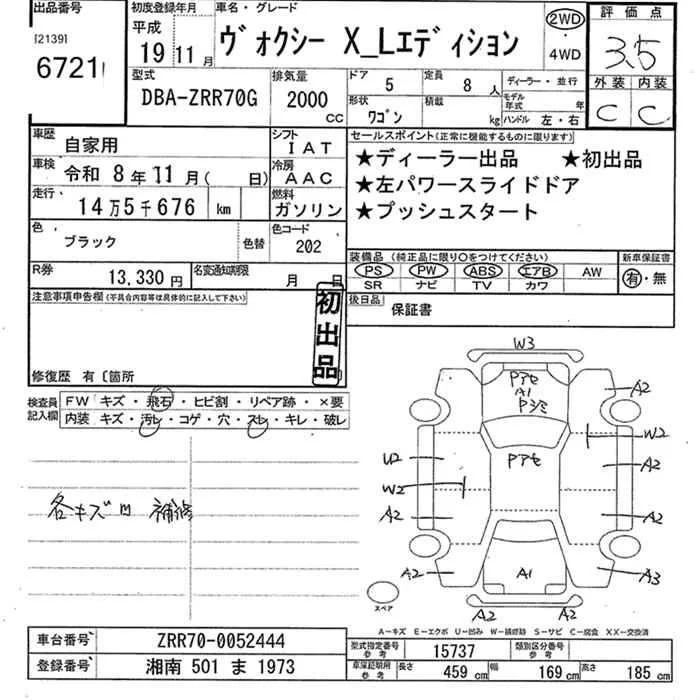 出品番号
[2139]
6721
初度登録年月
平成
19年11月
車名・グレード
ヴォクシー X_Lエディション
2WD
・
4WD
評価点
3.5
外装 内装
C C
型式
DBA-ZRR70G
排気量
2000
CC
ドア 5
定員 8 人
形状 ワゴン
積載 kg
ディーラー・並行
モデル年式 年
ハンドル 左・右
車歴 自家用
車検 令和 8年11月( 日)
走行 14万5千676 km
色 ブラック
色替
シフト IAT
冷房 AAC
燃料 ガソリン
色コード 202
セールスポイント(正常に機能するものに限ります)
★ディーラー出品 ★初出品
★左パワースライドドア
★プッシュスタート
R券 13,330円
名変通知期限 月 日
装備品 (純正品に限り○をつけてください)
PS PW ABS エアB AW
SR ナビ TV カワ
新車保証書
有・無
後日品 保証書
注意事項申告欄(不具合内容等は具体的に記入して下さい)
初出品
修復歴 有〔箇所 〕
検査員記入欄
FW キズ・飛石・ヒビ割・リペア跡・×要
内装 キズ・汚レ・コゲ・穴・スレ・キレ・破レ
各キズ凹 補修
W3
Pアセ
A1
Pシミ
A2
W2
U2
Pアセ
A2
W2
A2
A2
A2
A1
A3
A2
A2
スペア
A-キズ E-エクボ U-凹み W-補修跡 S-サビ C-腐食 XX-交換済
車台番号 ZRR70-0052444
登録番号 湘南 501 ま 1973
型式指定番号 参考 15737
類別区分番号 参考
車庫証明用 参考 長さ 459 cm 幅 169 cm 高さ 185 cm